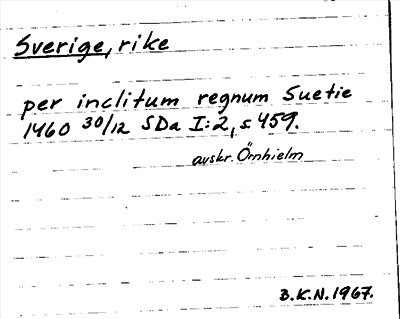 Sverige, rike
per inclitum regnum Suetie
1460 30/12 SDa I:2, s 459.
avskr. Örnhielm
B.K.N. 1967.